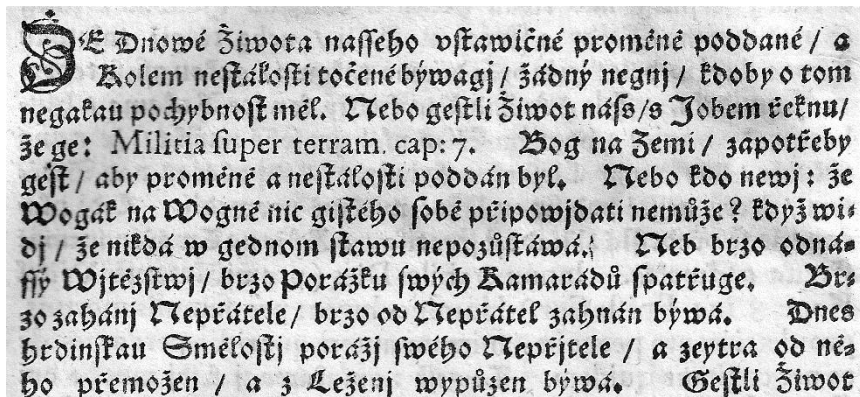 ŽE Dnowé Žiwota naſſeho vſtawičné proměně poddané / a
Kolem neſtáloſti točené býwagj / žádný negnj / kdoby o tom
negakau pochybnoſt měl. Nebo geſtli Žiwot náſs/s Jobem řeknu/
že ge: Militia ſuper terram. cap: 7. Bog na Zemi / zapotřeby
geſt / aby proměně a neſtáloſti poddán byl. Nebo kdo newj: že
Wogák na Wogně nic giſtého ſobě připowjdati nemůže? když wi-
dj / že nikdá w gednom ſtawu nepozůſtáwá. Neb brzo odná-
ſſý Wjtězſtwj / brzo Porážku ſwých Kamarádů ſpatřuge. Br-
zo zahánj Nepřátele / brzo od Nepřátel zahnán býwá. Dnes
hrdinſkau Směloſtj porážj ſwého Nepřjtele / a zeytra od ně-
ho přemožen / a z Leženj wypůzen býwá. Geſtli Žiwot